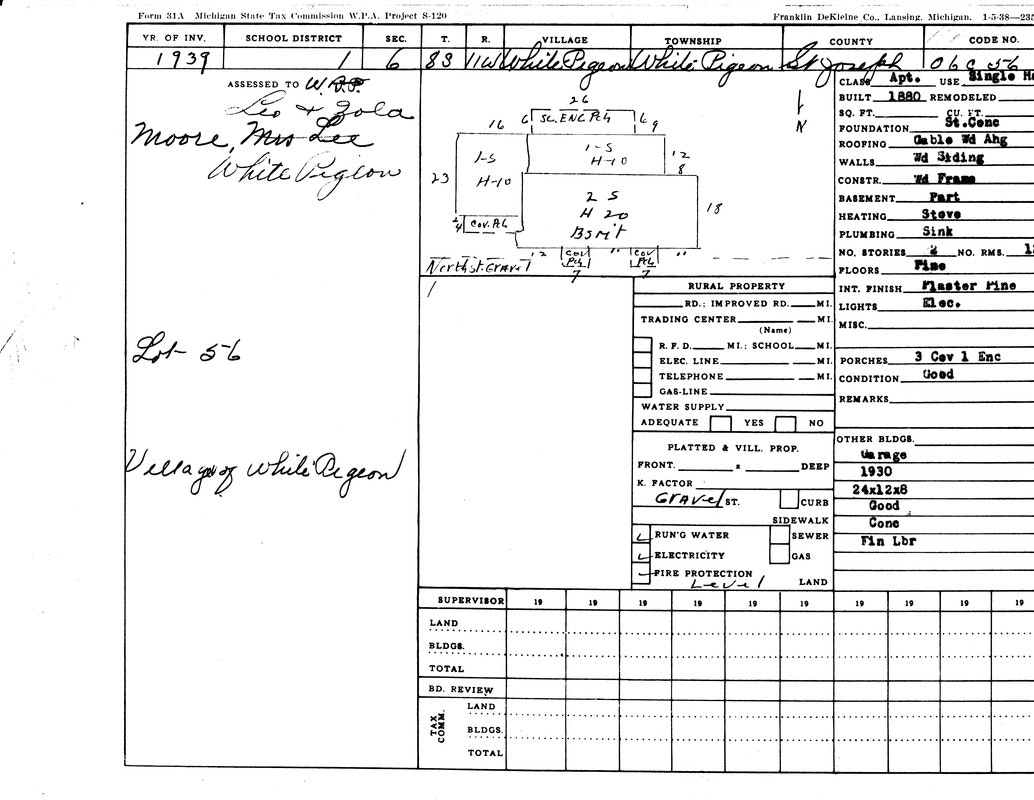 Form 31A Michigan State Tax Commission W.P.A. Project S-120
Franklin DeKleine Co., Lansing, Michigan. 1-5-38—235
YR. OF INV. SCHOOL DISTRICT SEC. T. R. VILLAGE TOWNSHIP COUNTY CODE NO.
1939 1 6 8S 11W White Pigeon White Pigeon St Joseph 06C 56
ASSESSED TO
Leo & Zola
Moore, Mrs Lee
White Pigeon
Lot 56
Village of White Pigeon
26
16 6 SC. ENC Pch 6 9
N
1-S
H-10
12
8
23
1-S
H-10
2 S
H 20
BSMT
18
2/4 Cov. Pch
12 Cov Pch 7 " Cov Pch 7 "
North St. Gravel
RURAL PROPERTY
RD.; IMPROVED RD. MI.
TRADING CENTER MI.
(Name)
R. F. D. MI.; SCHOOL MI.
ELEC. LINE MI.
TELEPHONE MI.
GAS-LINE
WATER SUPPLY
ADEQUATE YES NO
PLATTED & VILL. PROP.
FRONT. x DEEP
K. FACTOR
Gravel ST. CURB
SIDEWALK
RUN'G WATER SEWER
ELECTRICITY GAS
FIRE PROTECTION
Level LAND
CLASS Apt. USE Single
BUILT 1880 REMODELED
SQ. FT. CU. FT.
FOUNDATION St.Conc
ROOFING Gable Wd Ahg
WALLS Wd Siding
CONSTR. Wd Frame
BASEMENT Part
HEATING Stove
PLUMBING Sink
NO. STORIES 2 NO. RMS.
FLOORS Pine
INT. FINISH Plaster Pine
LIGHTS Elec.
MISC.
PORCHES 3 Cov 1 Enc
CONDITION Good
REMARKS
OTHER BLDGS.
Garage
1930
24x12x8
Good
Conc
Fin Lbr
SUPERVISOR 19 19 19 19 19 19 19 19 19
LAND
BLDGS.
TOTAL
BD. REVIEW
TAX COMM.
LAND
BLDGS.
TOTAL